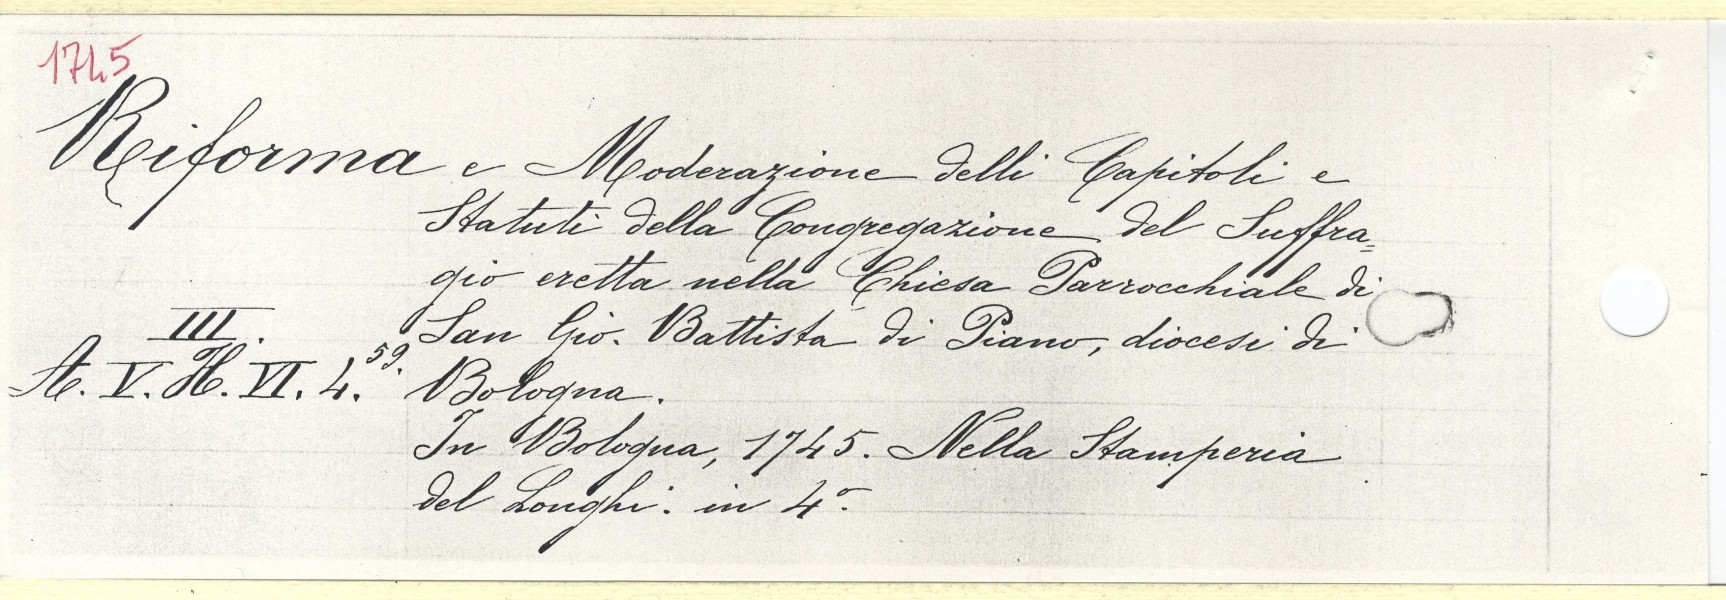 1745
Riforma e Moderazione delli Capitoli e
Statuti della Congregazione del Suffra=
gio eretta nella Chiesa Parrocchiale di
San Gio. Battista di Piano, diocesi di
Bologna.
In Bologna, 1745. Nella Stamperia
del Longhi. in 4º.
III.
A. V. H. VI. 4.59.